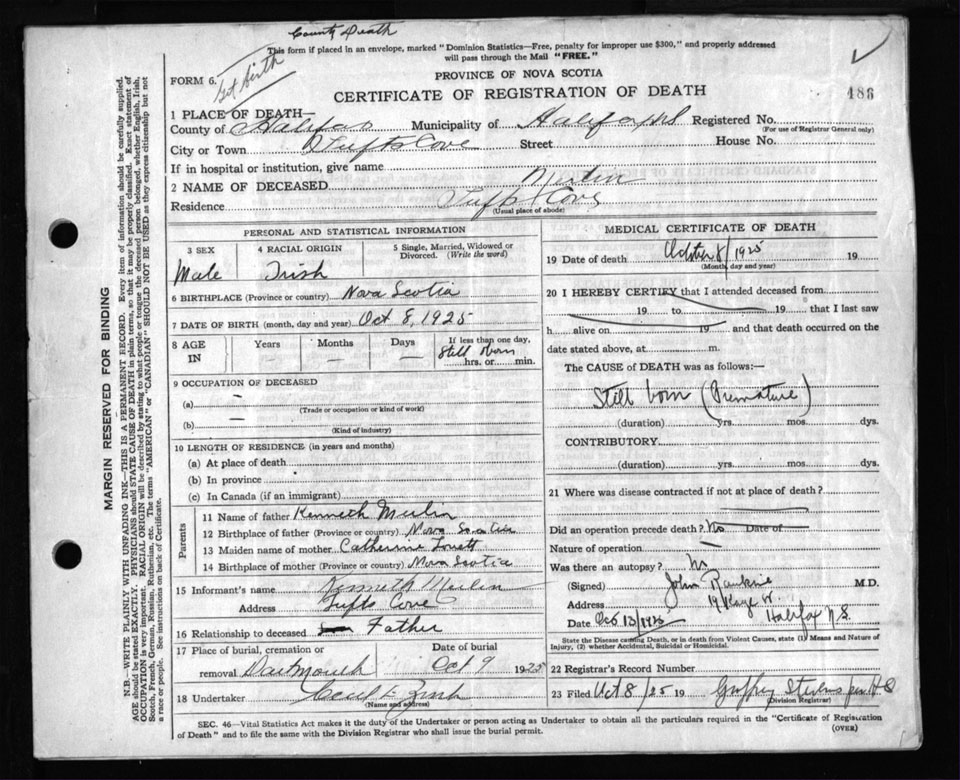 County Death
This form if placed in an envelope, marked "Dominion Statistics—Free, penalty for improper use $300," and properly addressed
will pass through the Mail "FREE."
FORM 6.
Got birth
PROVINCE OF NOVA SCOTIA
CERTIFICATE OF REGISTRATION OF DEATH
486
1 PLACE OF DEATH—
County of Halifax Municipality of Halifax Registered No.
(For use of Registrar General only)
City or Town Tufts Cove Street House No.
If in hospital or institution, give name
2 NAME OF DECEASED Merlin
Residence Tufts Cove
(Usual place of abode)
PERSONAL AND STATISTICAL INFORMATION
3 SEX 4 RACIAL ORIGIN 5 Single, Married, Widowed or Divorced. (Write the word)
Male Irish
6 BIRTHPLACE (Province or country) Nova Scotia
7 DATE OF BIRTH (month, day and year) Oct 8, 1925
8 AGE IN Years Months Days If less than one day,
— — — Still Born
hrs. or min.
9 OCCUPATION OF DECEASED
(a) —
(Trade or occupation or kind of work)
(b) —
(Kind of industry)
10 LENGTH OF RESIDENCE (in years and months)
(a) At place of death
(b) In province
(c) In Canada (if an immigrant)
Parents
11 Name of father Kenneth Merlin
12 Birthplace of father (Province or country) Nova Scotia
13 Maiden name of mother Catherine
14 Birthplace of mother (Province or country) Nova Scotia
15 Informant's name Kenneth Merlin
Address Tufts Cove
16 Relationship to deceased Father
17 Place of burial, cremation or Date of burial
removal Dartmouth Oct 9 1925
18 Undertaker Cecil
(Name and address)
MEDICAL CERTIFICATE OF DEATH
19 Date of death October 8/1925 19
(Month, day and year)
20 I HEREBY CERTIFY that I attended deceased from
19 to 19 that I last saw
h alive on 19 and that death occurred on the
date stated above, at m.
The CAUSE of DEATH was as follows:—
Still born (Premature)
(duration) yrs. mos. dys.
CONTRIBUTORY
(duration) yrs. mos. dys.
21 Where was disease contracted if not at place of death?
Did an operation precede death? No Date of
Nature of operation —
Was there an autopsy? No
(Signed) John Rankine M.D.
Address Halifax N.S.
Date Oct 13/1925
State the Disease causing Death, or in death from Violent Causes, state (1) Means and Nature of
Injury, (2) whether Accidental, Suicidal or Homicidal.
22 Registrar's Record Number
23 Filed Oct 8/25 19 Stevens per H.S
(Division Registrar)
SEC. 46—Vital Statistics Act makes it the duty of the Undertaker or person acting as Undertaker to obtain all the particulars required in the "Certificate of Registration
of Death" and to file the same with the Division Registrar who shall issue the burial permit.
(OVER)
MARGIN RESERVED FOR BINDING
N.B.—WRITE PLAINLY WITH UNFADING INK—THIS IS A PERMANENT RECORD. Every item of information should be carefully supplied.
AGE should be stated EXACTLY. PHYSICIANS should STATE CAUSE OF DEATH in plain terms, so that it may be properly classified. Exact statement of
OCCUPATION is very important. RACIAL ORIGIN will be described by stating to what people or tongue the deceased person belonged, whether English, Irish,
Scotch, French, German, Russian, Ruthenian, etc. The terms "AMERICAN" or "CANADIAN" SHOULD NOT BE USED as they express citizenship but not
a race or people. See instructions on back of Certificate.